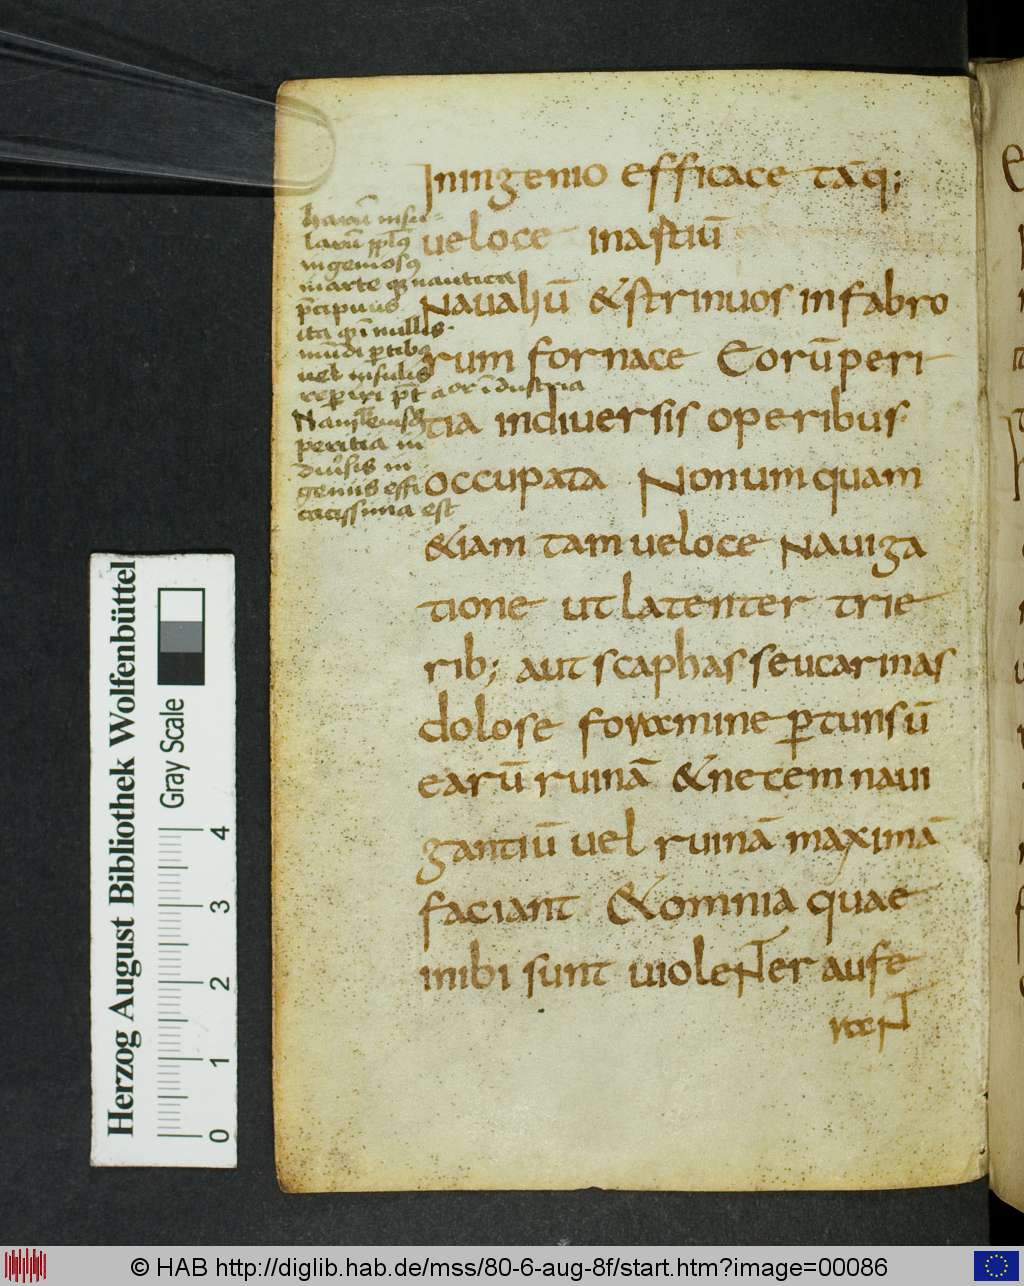 In ingenio efficace tāq;
ueloce in astiū
Naualiū & strinuos in fabro
rum fornace Eorū peri
tia in diuersis operibus
occupata Nonumquam
&iam tam ueloce Nauiga
tione ut latenter trie
rib; aut scaphas seu carinas
dolose foramine ꝑtunsū
earū ruinā & necem naui
gantiū uel ruinā maximā
faciant & omnia quae
inibi sunt uiolenter aufe
rant
harū insu-
larū ppl'
ingeniosꝰ
in arte nautica
p̄cipuus
ita qđ in nullis
mundi ꝑtibꝫ
uel insulis
repiri pōt aōr īdustria
Nam
peritia in
diu'sis in
geniis effi
cacissima est
Herzog August Bibliothek Wolfenbüttel
Gray Scale
0 1 2 3 4
© HAB http://diglib.hab.de/mss/80-6-aug-8f/start.htm?image=00086